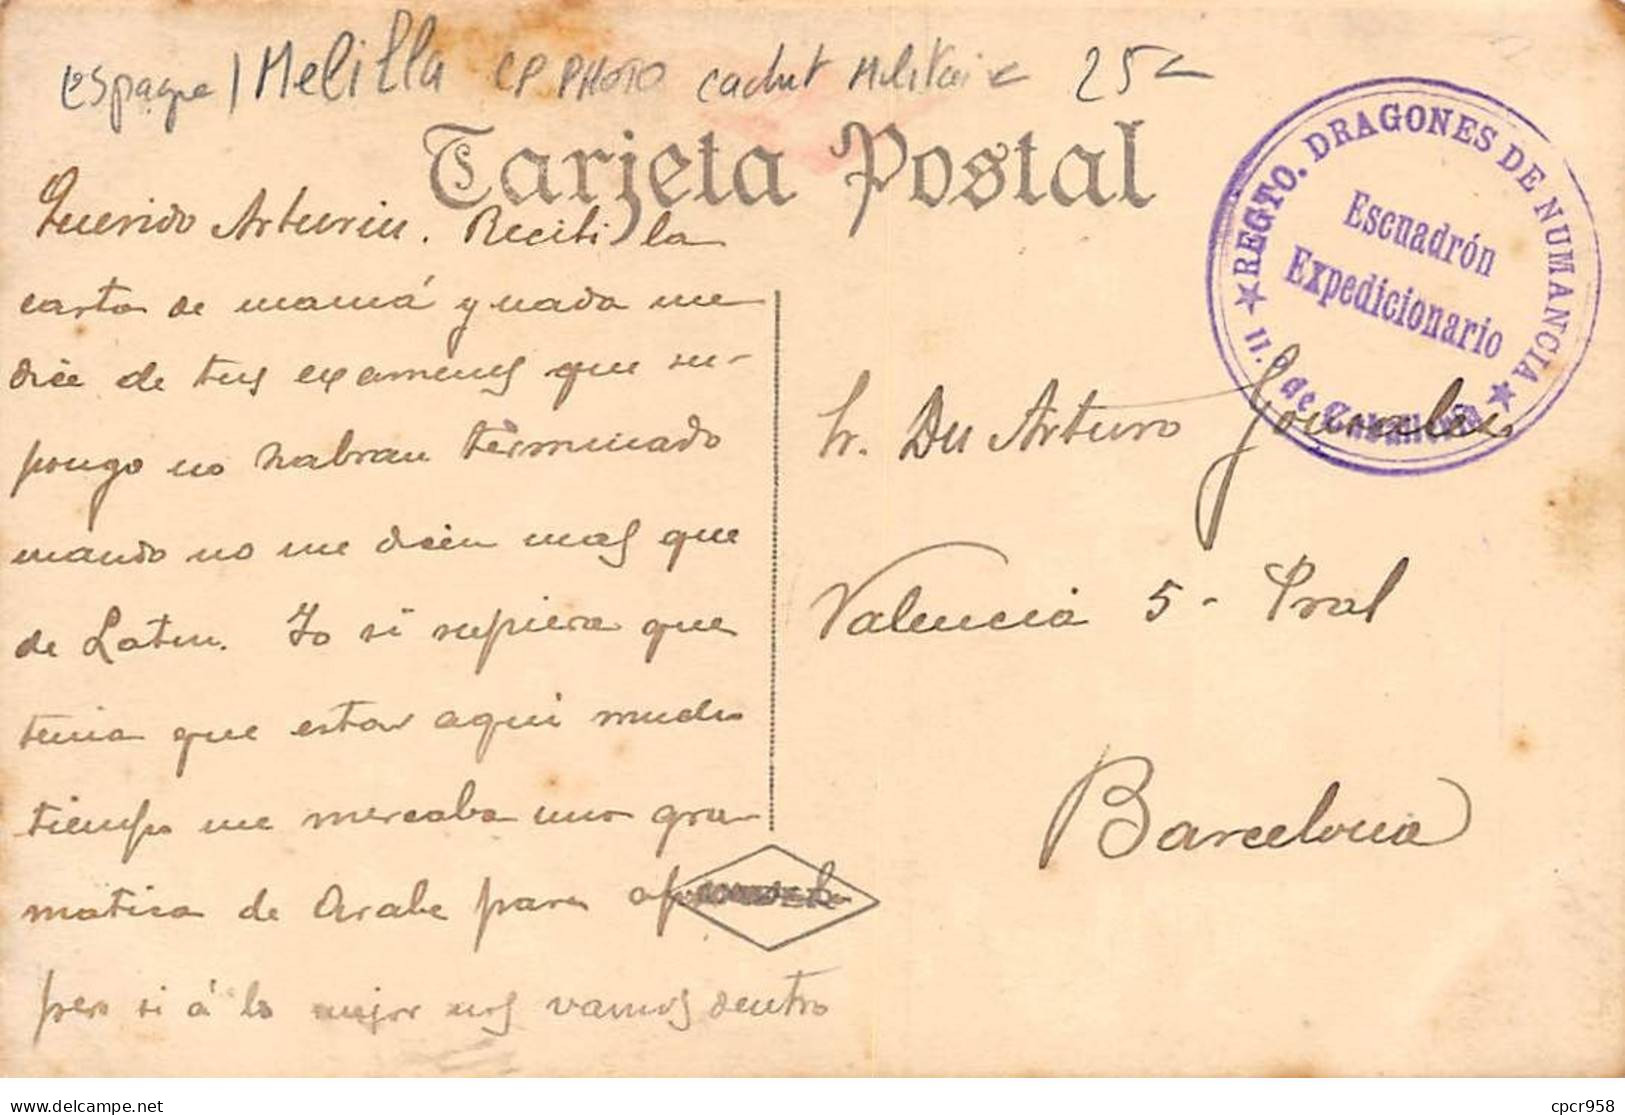 Espagne / Melilla CP PHOTO cachet Militaire 25
Tarjeta Postal
REGTO. DRAGONES DE NUMANCIA
11.º de Caballería
Escuadrón
Expedicionario
Querido Arturin. Recibí la
carta de mamá y nada me
dice de tus examenes que su-
pongo no habran terminado
cuando no me dicen mas que
de Latin. Yo si supiera que
tenia que estar aqui mucho
tiempo me mercaba una gra-
matica de Arabe para
pero si á lo mejor nos vamos dentro
Sr. Dn Arturo Gonzalez
Valencia 5 - Pral
Barcelona
delcampe.net
cpcr958